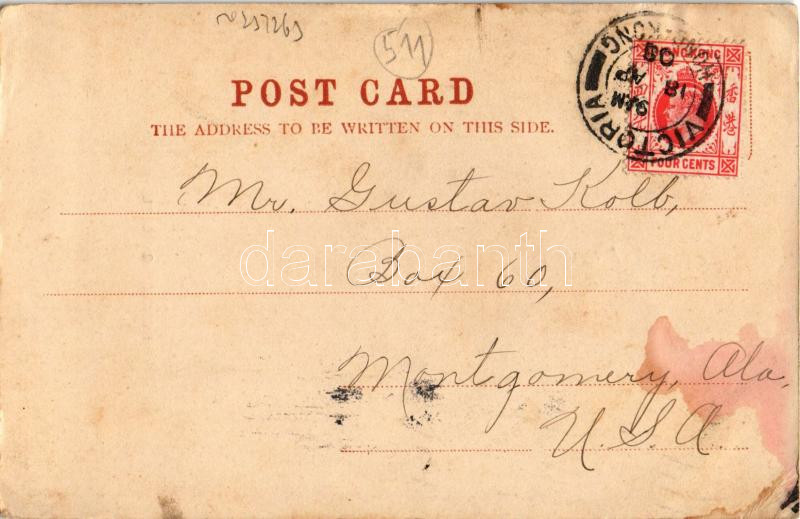 511
POST CARD
THE ADDRESS TO BE WRITTEN ON THIS SIDE.
HONGKONG
香港
FOUR CENTS
VICTORIA
HONG-KONG
9 AM
18
AP
Mr. Gustav Kolb,
Box 60,
Montgomery, Ala.
U.S.A.
darabanth